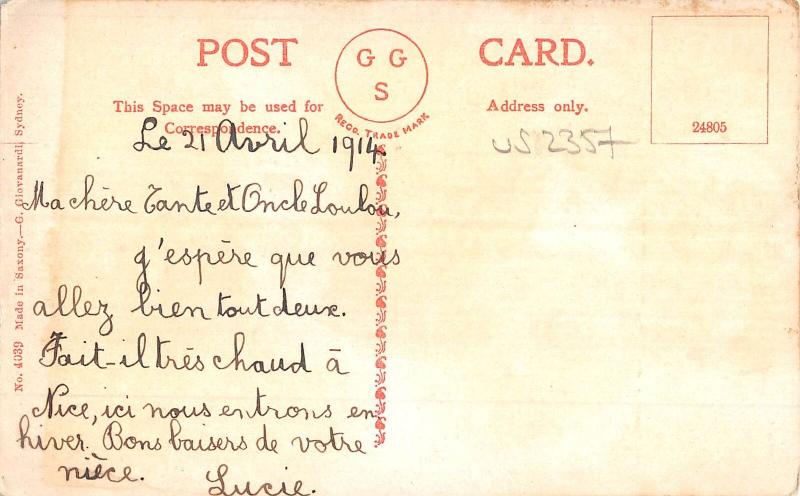 POST CARD.
G G
S
REGD. TRADE MARK
This Space may be used for
Correspondence.
Address only.
24805
US 2357
No. 4039 Made in Saxony.—G. Giovanardi, Sydney.
Le 21 Avril 1914
Ma chère Tante et Oncle Loulou,
j'espère que vous
allez bien tout deux.
Fait-il très chaud à
Nice, ici nous entrons en
hiver. Bons baisers de votre
nièce. Lucie.